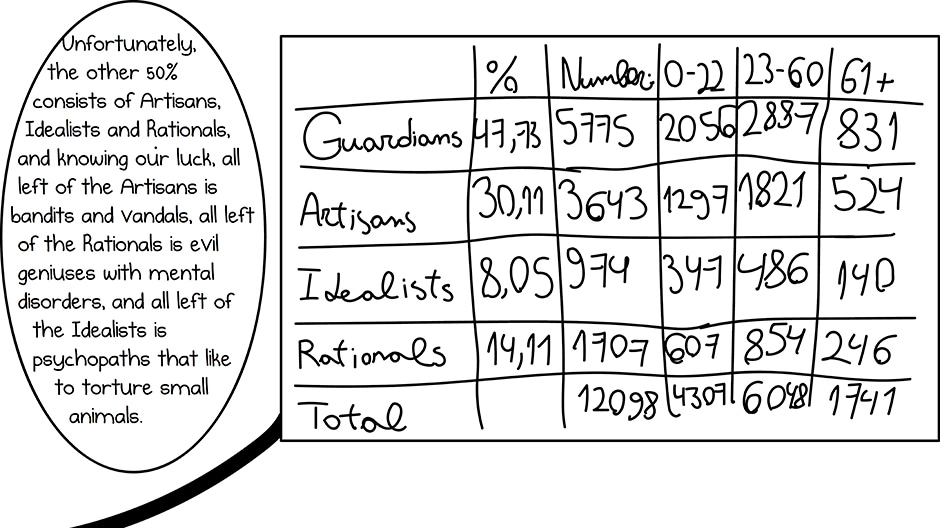 Unfortunately,
the other 50%
consists of Artisans,
Idealists and Rationals,
and knowing our luck, all
left of the Artisans is
bandits and vandals, all left
of the Rationals is evil
geniuses with mental
disorders, and all left of
the Idealists is
psychopaths that like
to torture small
animals.
% Number: 0-22 23-60 61+
Guardians 47,73 5775 2056 2887 831
Artisans 30,11 3643 1297 1821 524
Idealists 8,05 974 347 486 140
Rationals 14,11 1707 607 854 246
Total 12098 4307 6048 1741